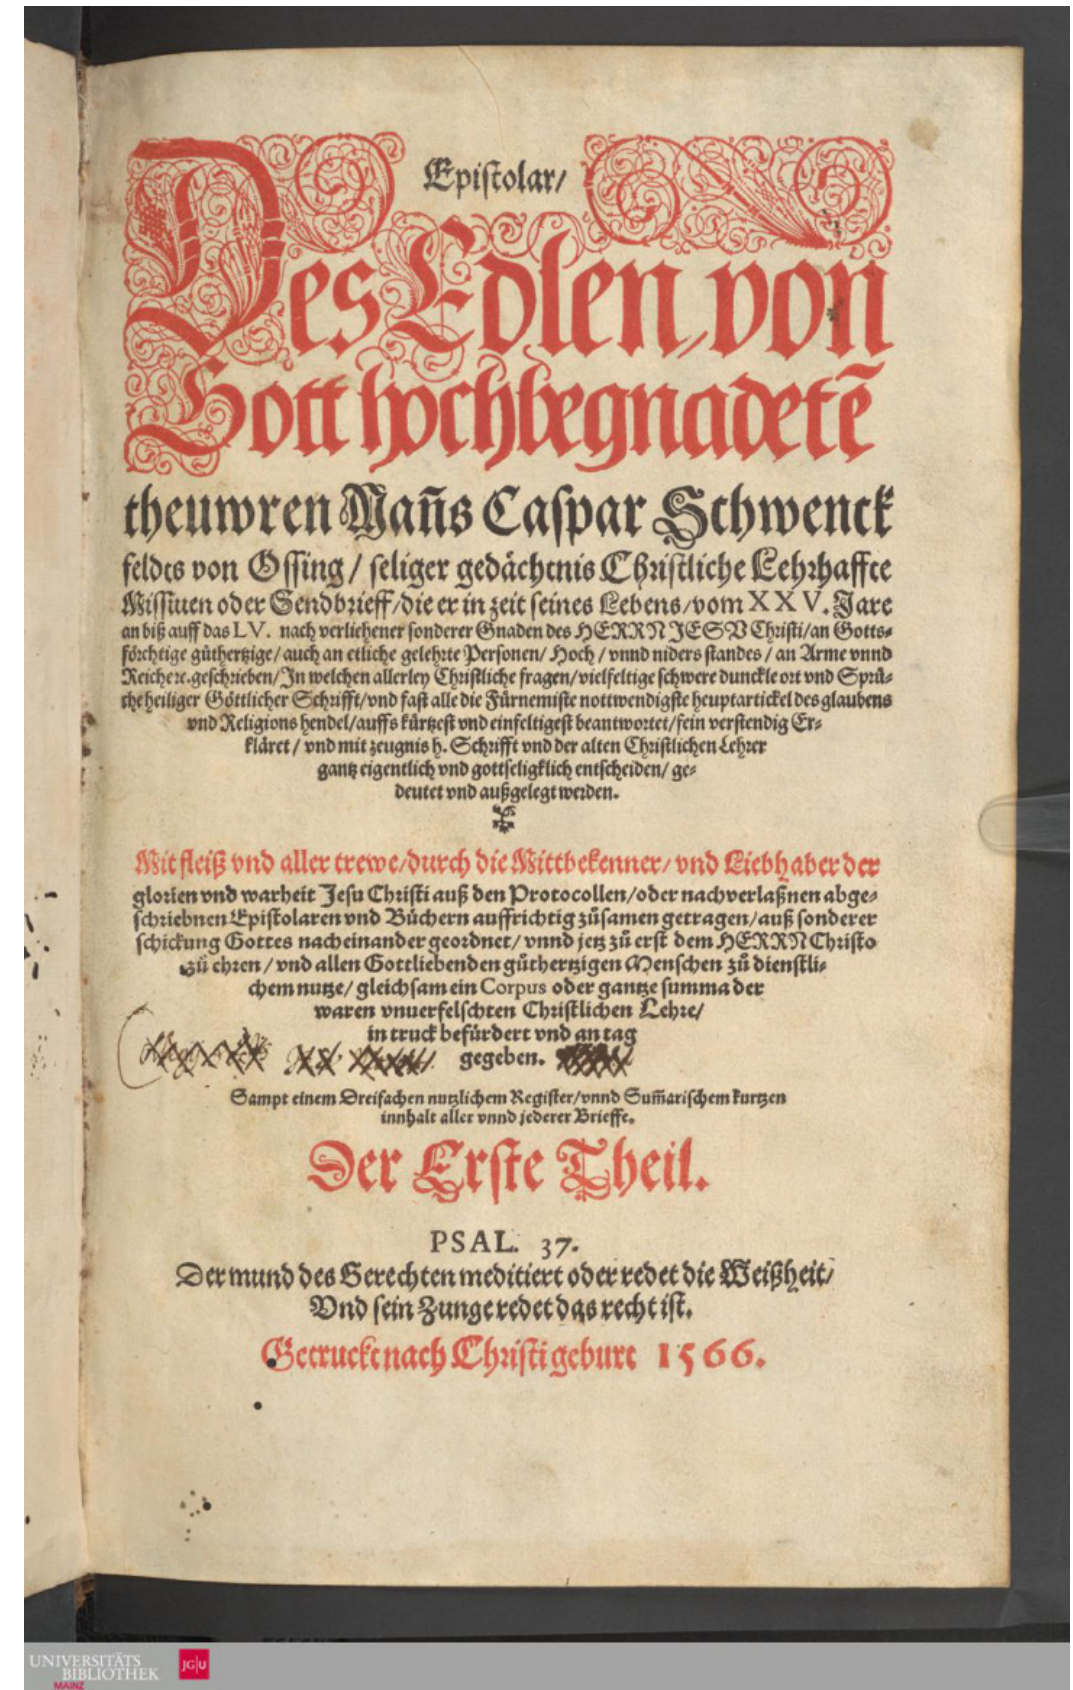 Epistolar/
Des Edlen/ von
Gott hochbegnadetẽ
theuwren Mañs Caspar Schwenck
feldts von Ossing/ seliger gedächtnis Christliche Lehrhaffte
Missiuen oder Sendbrieff/die er in zeit seines Lebens/vom XXV. Jare
an biß auff das LV. nach verliehener sonderer Gnaden des HERRN JESV Christi/an Gotts-
förchtige güthertzige/auch an etliche gelehrte Personen/Hoch/vnnd niders standes/an Arme vnnd
Reiche ꝛc. geschrieben/In welchen allerley Christliche fragen/vielfeltige schwere dunckle ort vnd Sprü-
che heiliger Göttlicher Schrifft/vnd fast alle die Fürnemiste nottwendigste heuptartickel des glaubens
vnd Religions hendel/auffs kürtzest vnd einfeltigest beantwortet/fein verstendig Er-
kläret/vnd mit zeugnis h. Schrifft vnd der alten Christlichen Lehrer
gantz eigentlich vnd gottseligklich entscheiden/ge-
deutet vnd außgelegt werden.
Mit fleiß vnd aller trewe/durch die Mittbekenner/vnd Liebhaber der
glorien vnd warheit Jesu Christi auß den Protocollen/oder nachverlaßnen abge-
schriebnen Epistolaren vnd Büchern auffrichtig zůsamen getragen/auß sonderer
schickung Gottes nacheinander geordnet/vnnd jetz zů erst dem HERRN Christo
zů ehren/vnd allen Gottliebenden güthertzigen Menschen zů dienstli-
chem nutze/gleichsam ein Corpus oder gantze summa der
waren vnuerfelschten Christlichen Lehre/
in truck befürdert vnd an tag
gegeben.
Sampt einem Dreifachen nutzlichem Register/vnnd Sum̃arischem kurtzen
innhalt aller vnnd jederer Brieffe.
Der Erste Theil.
PSAL. 37.
Der mund des Gerechten meditiert oder redet die Weißheit/
Vnd sein Zunge redet das recht ist.
Getruckt nach Christi geburt 1566.
UNIVERSITÄTS
BIBLIOTHEK
MAINZ
JG|U